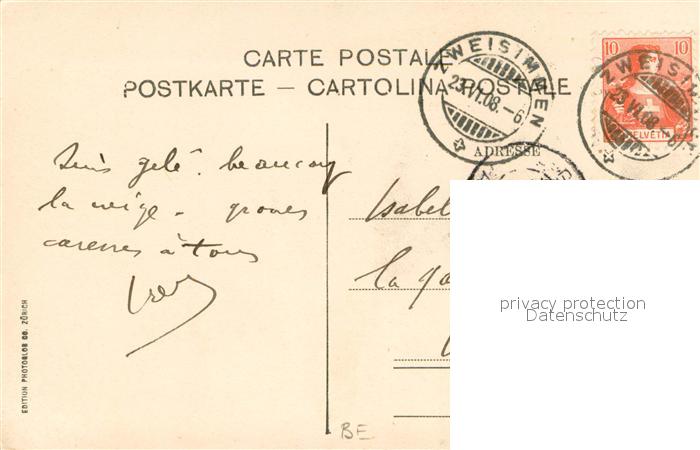 CARTE POSTALE
POSTKARTE — CARTOLINA POSTALE
ZWEISIMMEN
23.VI.08.–6
10 10
HELVETIA
ZWEISIMMEN
23.VI.08.–6
ADRESSE
Suis gelé. beaucoup
la neige. grosses
caresses à tous
Isabel
la
privacy protection
Datenschutz
EDITION PHOTOGLOB CO. ZÜRICH
BE